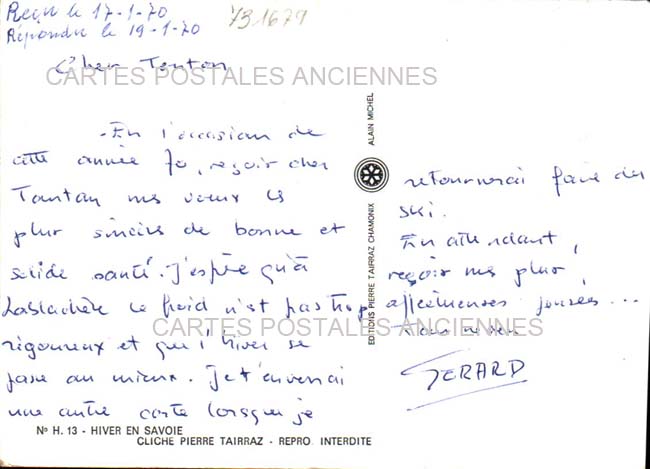 Reçu le 17-1-70
Répondre le 19-1-70
731679
Cher Tonton
CARTES POSTALES ANCIENNES
-En l'occasion de
cette année 70, reçoir cher
Tonton mes voeux les
plus sincères de bonne et
solide santé. J'espère qu'à
Lablachère le froid n'est pas trop
rigoureux et que l'hiver se
passe au mieux. Je t'enverrai
une autre carte lorsque je
retournerai faire du
ski.
En attendant,
reçoir mes plus
affectueuses pensées...
CARTES POSTALES ANCIENNES
GERARD
EDITIONS PIERRE TAIRRAZ CHAMONIX
ALAIN MICHEL
No H. 13 - HIVER EN SAVOIE
CLICHE PIERRE TAIRRAZ - REPRO. INTERDITE